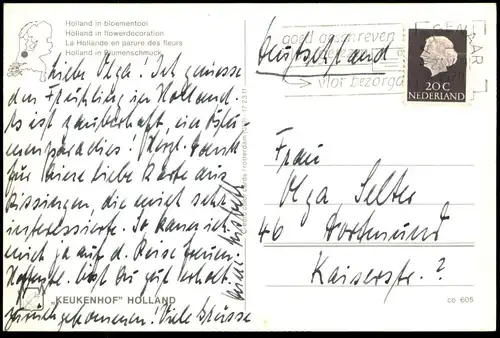 Holland in bloementooi
Holland in flowerdecoration
La Hollande en parure des fleurs
Holland in Blumenschmuck
Liebe Olga! Ich geniesse
den Frühling in Holland.
Es ist zauberhaft, ein
paradies! Herzl. Dank
für Deine liebe Karte aus
die mich sehr
interessierte. So kann ich
mich ja auf d. Reise freuen.
Hoffentl. bist Du gut
Viele Grüsse
"KEUKENHOF" HOLLAND
goed geschreven
vlot bezorgd
Deutschland
20 C
NEDERLAND
Frau
Olga Selter
46 Dortmund
Kaiserstr. ?
co 605